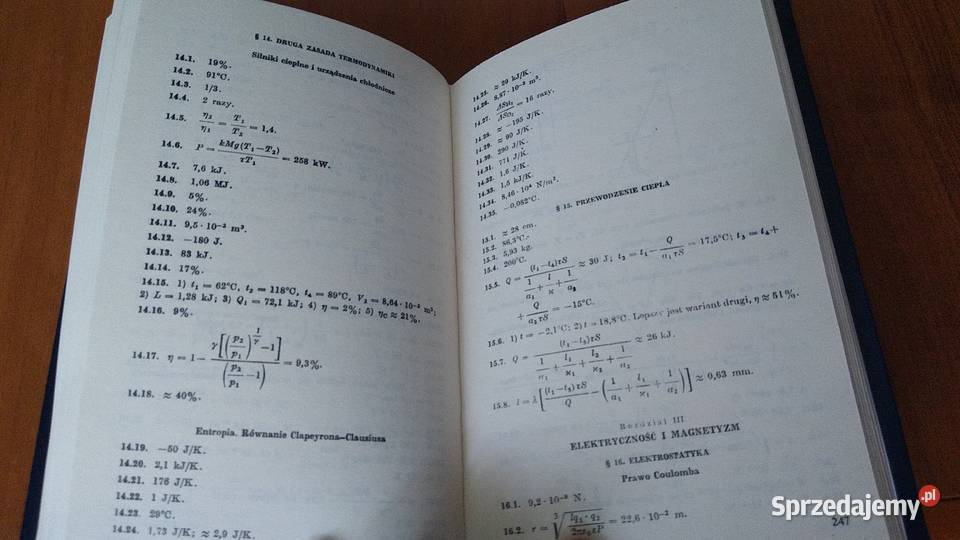 § 14. DRUGA ZASADA TERMODYNAMIKI
Silniki cieplne i urządzenia chłodnicze
14.1. 19%.
14.2. 91°C.
14.3. 1/3.
14.4. 2 razy.
14.5. η₂/η₁ = T₁/T₂ = 1,4.
14.6. P = kMg(T₁−T₂)/τT₁ = 258 kW.
14.7. 7,6 kJ.
14.8. 1,06 MJ.
14.9. 5%.
14.10. 24%.
14.11. 9,5·10⁻³ m³.
14.12. −180 J.
14.13. 83 kJ.
14.14. 17%.
14.15. 1) t₁ = 62°C, t₂ = 118°C, t₄ = 89°C, V₂ = 8,64·10⁻³ m³;
2) L = 1,28 kJ; 3) Q₁ = 72,1 kJ; 4) η = 2%; 5) η_C ≈ 21%.
14.16. 9%.
14.17. η = 1− γ[(p₂/p₁)^(1/γ) −1] / (p₂/p₁ −1) = 9,3%.
14.18. ≈ 40%.
Entropia. Równanie Clapeyrona-Clausiusa
14.19. −50 J/K.
14.20. 2,1 kJ/K.
14.21. 176 J/K.
14.22. 1 J/K.
14.23. 29°C.
14.24. 1,73 J/K; ≈ 2,9 J/K.
14.25. ≈ 29 kJ/K.
14.26. 8,87·10⁻³ m³.
14.27. = 16 razy.
14.28. ≈ −195 J/K.
14.29. ≈ 90 J/K.
14.30. 290 J/K.
14.31. 771 J/K.
14.32. 1,6 J/K.
14.33. 1,5 kJ/K.
14.34. 8,46·10⁴ N/m².
14.35. −0,082°C.
§ 15. PRZEWODZENIE CIEPŁA
15.1. ≈ 28 cm.
15.2. 86,3°C.
15.3. 5,93 kg.
15.4. 200°C.
15.5. Q = (t₁−t₄)τS / (1/α₁ + l/κ + 1/α₂) ≈ 30 J; t₂ = t₁− Q/α₁τS = 17,5°C; t₃ = t₄+
+ Q/α₂τS = −15°C.
15.6. 1) t = −2,1°C; 2) t = 18,8°C. Lepszy jest wariant drugi, η ≈ 51%.
15.7. Q = (t₁−t₂)τS / (1/α₁ + l₁/κ₁ + l₂/κ₂ + 1/α₂) ≈ 26 kJ.
15.8. l = λ[(t₁−t₂)τS/Q − (1/α₁ + l₁/κ₁ + 1/α₂)] ≈ 0,63 mm.
Rozdział III
ELEKTRYCZNOŚĆ I MAGNETYZM
§ 16. ELEKTROSTATYKA
Prawo Coulomba
16.1. 9,2·10⁻⁸ N.
16.2. r = = 22,6·10⁻² m.
247
Sprzedajemy.pl